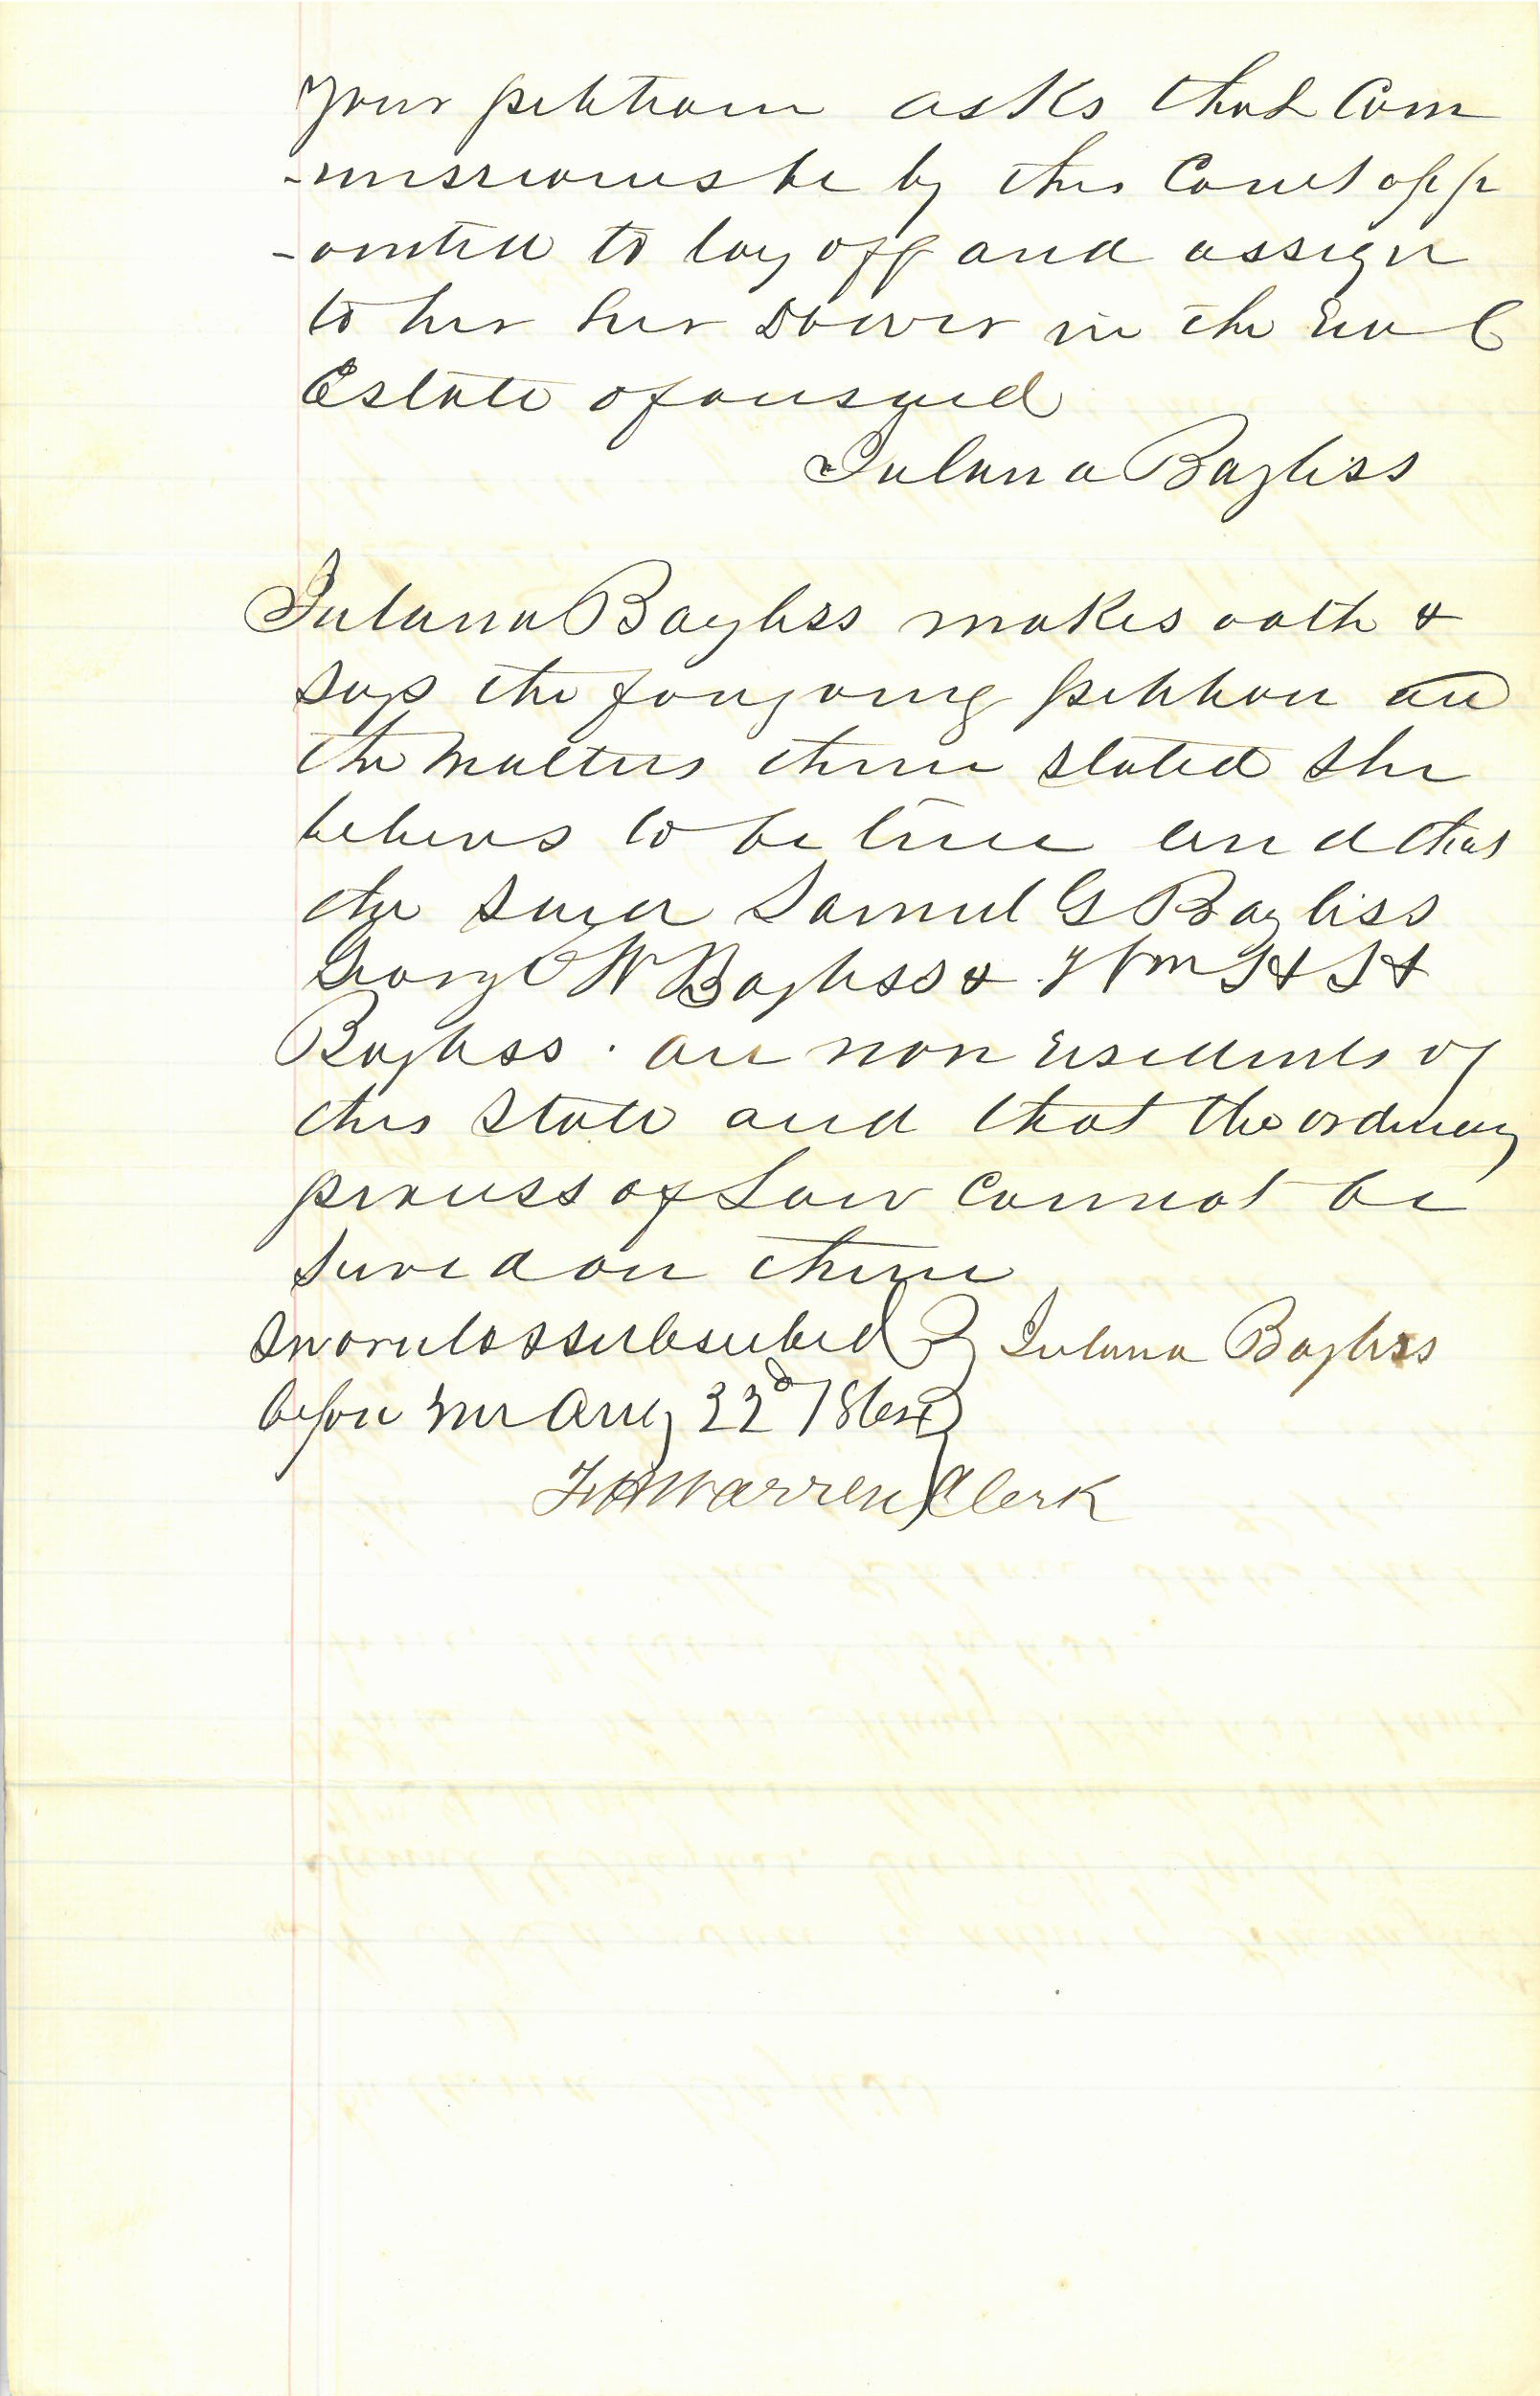 your petitioner asks that Com
-missioners be by this Court app
-ointed to lay off and assign
to her her Dower in the Real
Estate aforesaid
Julana Bayliss
Julana Bayliss makes oath &
says the foregoing petition and
the matters therein stated she
believes to be true and that
the said Samuel G Bayliss
George W Bayliss & Wm H H
Bayliss are non residents of
this State and that the ordinary
process of Law cannot be
served on them
Sworn to & subscribed Julana Bayliss
before me Aug 22d
Warren Clerk